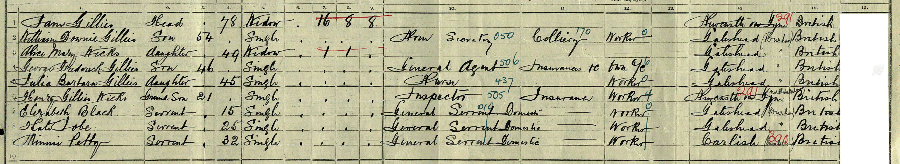 Jane Gillies Head 78 Widow 16 8 8 Newcastle on Tyne British
William Downie Gillies Son 54 Single Hon Secretary 050 Colliery 170 Worker 0 Gateshead British
Alice Mary Wicks Daughter 49 Widow 1 1 Gateshead British
George Frederick Gillies Son 46 Single General Agent 506 Insurance &c Own a/c Gateshead British
Julia Barbara Gillies Daughter 45 Single Nurse 437 Worker 0 Gateshead British
Henry Gillies Wicks Grand Son 21 Single Inspector 505 Insurance Worker 4 Newcastle on Tyne British
Elizabeth Black Servant 15 Single General Servant Domestic Worker 0 Gateshead British
Kate Servant 25 Single General Servant Domestic Worker Gateshead British
Minnie Petty Servant 32 Single General Servant Domestic Worker Carlisle British